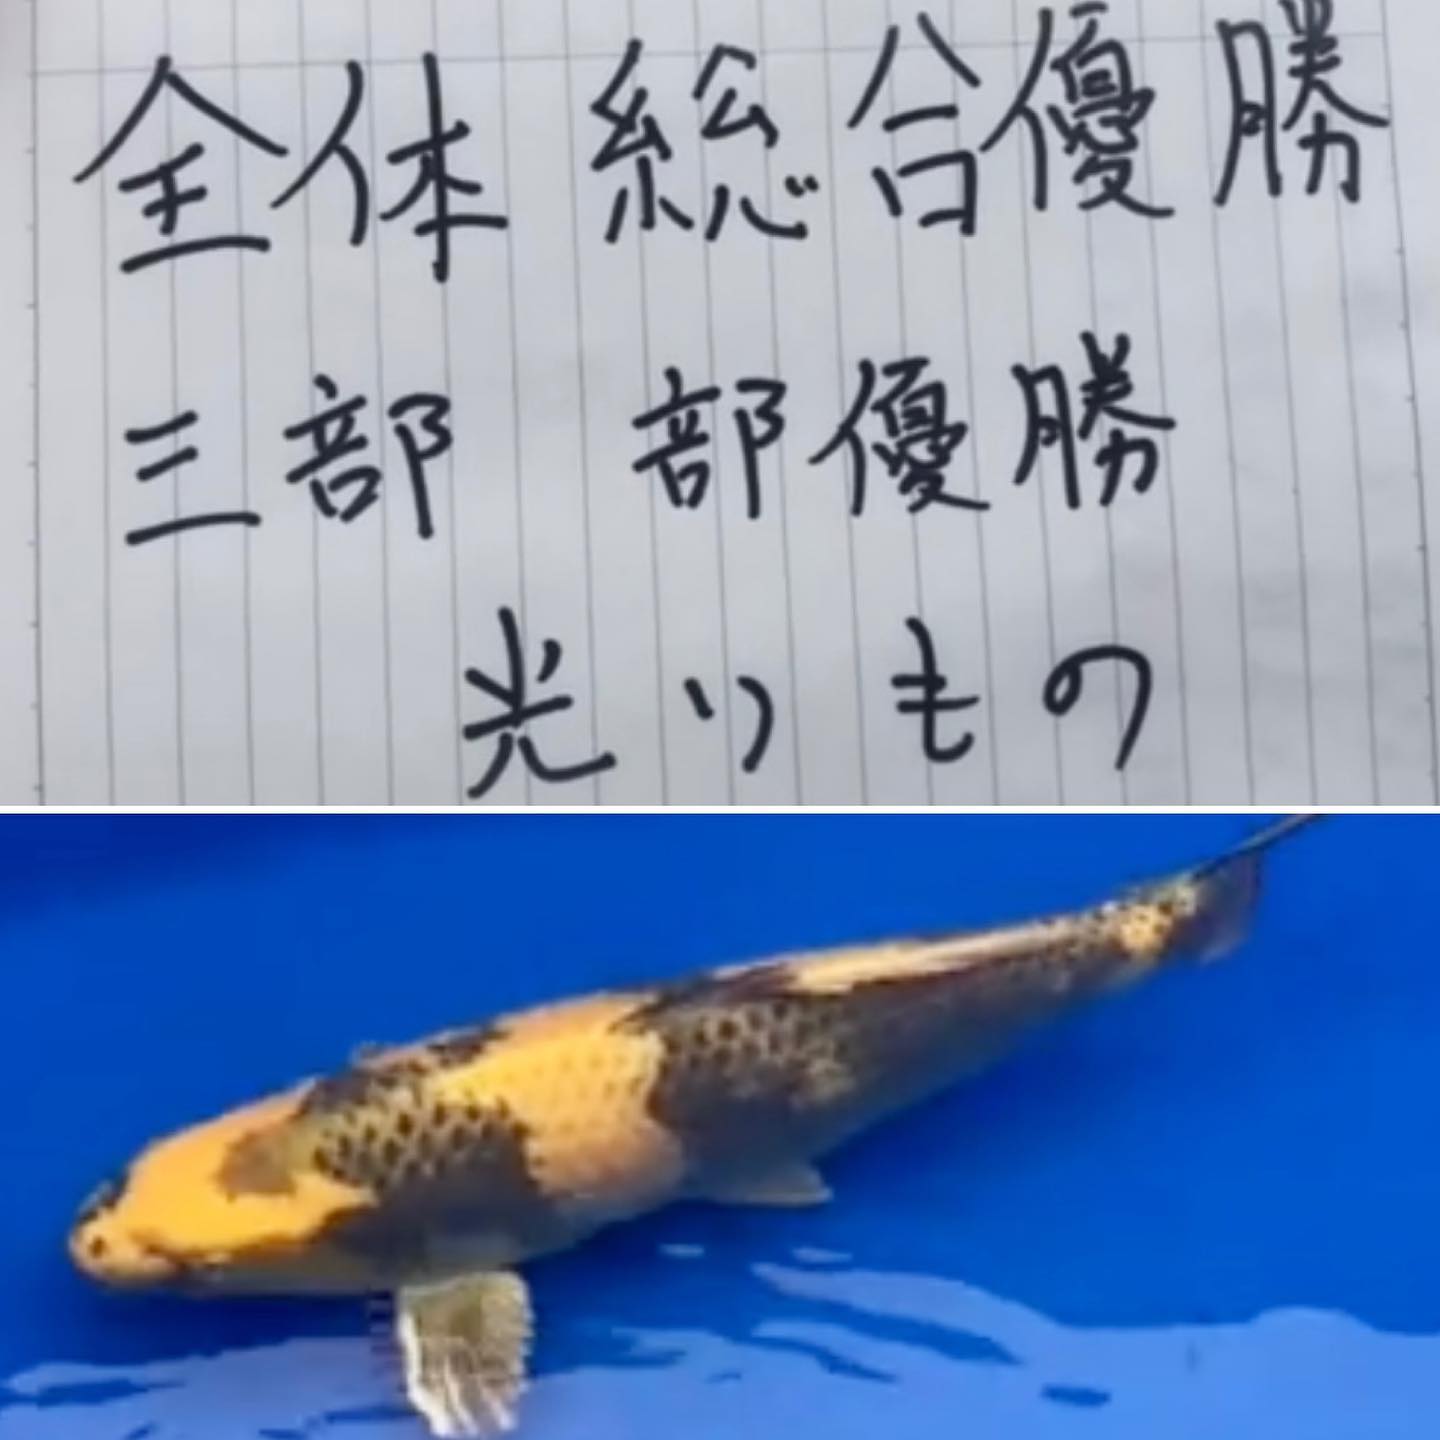 全体 総合優勝
三部 部優勝
光りもの